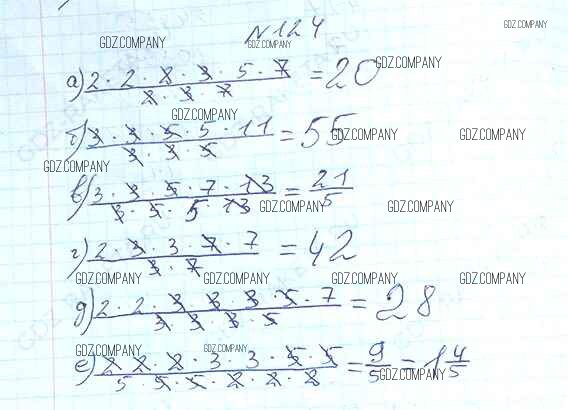 GDZ.COMPANY
N124
GDZ.COMPANY GDZ.COMPANY
а) 2 · 2 · 2 · 3 · 5 · 7 / 2 · 3 · 7 = 20 GDZ.COMPANY
GDZ.COMPANY
б) 3 · 3 · 5 · 5 · 11 / 3 · 3 · 5 = 55 GDZ.COMPANY GDZ.COMPANY
GDZ.COMPANY
в) 3 · 3 · 5 · 7 · 13 / 3 · 5 · 5 · 13 = 21/5 GDZ.COMPANY GDZ.COMPANY
г) 2 · 3 · 3 · 7 · 7 / 3 · 7 = 42
GDZ.COMPANY GDZ.COMPANY GDZ.COMPANY GDZ.COMPANY
д) 2 · 2 · 3 · 3 · 3 · 5 · 7 / 3 · 3 · 3 · 5 = 28
GDZ.COMPANY GDZ.COMPANY
е) 2 · 2 · 2 · 3 · 3 · 5 · 5 / 5 · 5 · 5 · 2 · 2 · 2 = 9/5 = 1 4/5
GDZ.COMPANY